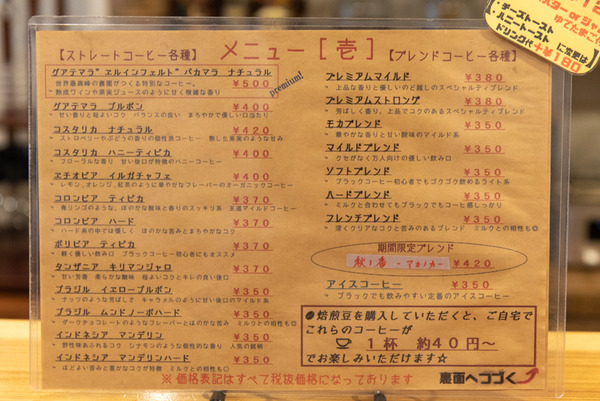 【ストレートコーヒー各種】
メニュー[壱]
【ブレンドコーヒー各種】
グアテマラ"エルインフェルト"パカマラ ナチュラル
￥500
premium!
世界最高峰の農園がつくる特別なコーヒー。
~ 熟成ワインや果実ジュースのように甘く複雑な香り
グアテマラ ブルボン ￥400
~ 甘い香りと程よいコク バランスの良い まろやかで優しい口当たり
コスタリカ ナチュラル ￥420
~ ストロベリーやぶどうの香りの個性派コーヒー 熟した果実のような甘み
コスタリカ ハニーティピカ ￥400
~ フローラルな香り 甘い後口が特徴のハニーコーヒー
エチオピア イルガチャフェ ￥400
~ レモン,オレンジ,紅茶のように華やかなフレーバーのオーガニックコーヒー
コロンビア ティピカ ￥370
~ 青リンゴのような、ほのかな酸味と香りのスッキリ系 王道マイルドコーヒー
コロンビア ハード ￥370
~ ハード系の中では優しく ほのかな苦みとまろやかなコク
ボリビア ティピカ ￥370
~ 軽く優しい飲み口 ブラックコーヒー初心者にもオススメ
タンザニア キリマンジャロ ￥370
~ 甘い芳香 柔らかな酸味 程よいコクとキレの良い後口
ブラジル イエローブルボン ￥350
~ ナッツのような芳ばしさ キャラメルのように甘い後口のマイルド系
ブラジル ムンドノーボハード ￥350
~ ダークチョコレートのようなフレーバーとほのかな苦み ミルクとの相性も◎
インドネシア マンデリン ￥350
~ 野性味あふれるコク シナモンのような個性的な香り 人気の銘柄
インドネシア マンデリンハード ￥350
~ ほどよい苦みと豊かなコクが特徴 ミルクとの相性も◎
プレミアムマイルド ￥380
~ 上品な香りと優しいのど越しのスペシャルティブレンド
プレミアムストロング ￥380
~ 芳ばしく香り。上品でコクのあるスペシャルティブレンド
モカブレンド ￥350
~ 華やかな香りと甘い酸味のマイルド系
マイルドブレンド ￥350
~ クセがなく万人向けの優しい飲み口
ソフトブレンド ￥350
~ ブラックコーヒー初心者でもゴクゴク飲めるライト系
ハードブレンド ￥350
~ ミルクと合わせてもブラックでもコーヒー感しっかり
フレンチブレンド ￥350
~ 深くクリアなコクと苦みのあるブレンド ミルクとの相性も◎
期間限定ブレンド
￥420
アイスコーヒー ￥350
~ ブラックでも飲みやすい定番のアイスコーヒー
●焙煎豆を購入していただくと、ご自宅で
これらのコーヒーが
1杯 約40円~
でお楽しみいただけます☆
※価格表記はすべて税抜価格になっております
裏面へつづく
ゆでたまご
・チーズトースト
・ハニートースト に変更は
ドリンク代+￥180